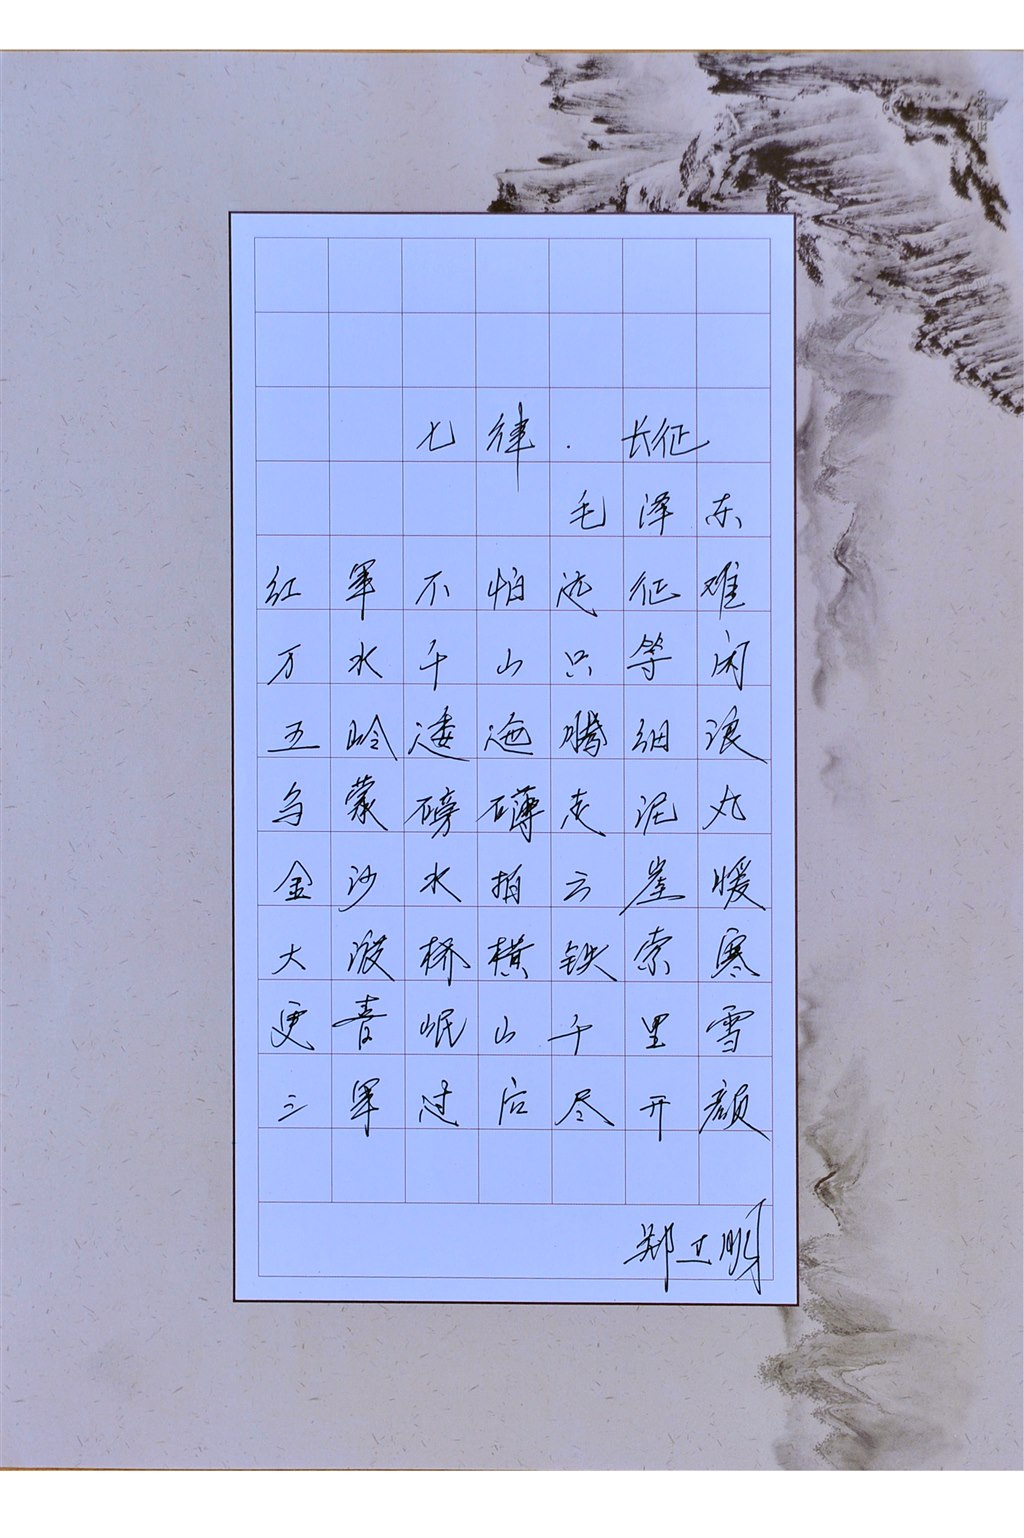 七律·长征
毛泽东
红军不怕远征难
万水千山只等闲
五岭逶迤腾细浪
乌蒙磅礴走泥丸
金沙水拍云崖暖
大渡桥横铁索寒
更喜岷山千里雪
三军过后尽开颜
郑立明